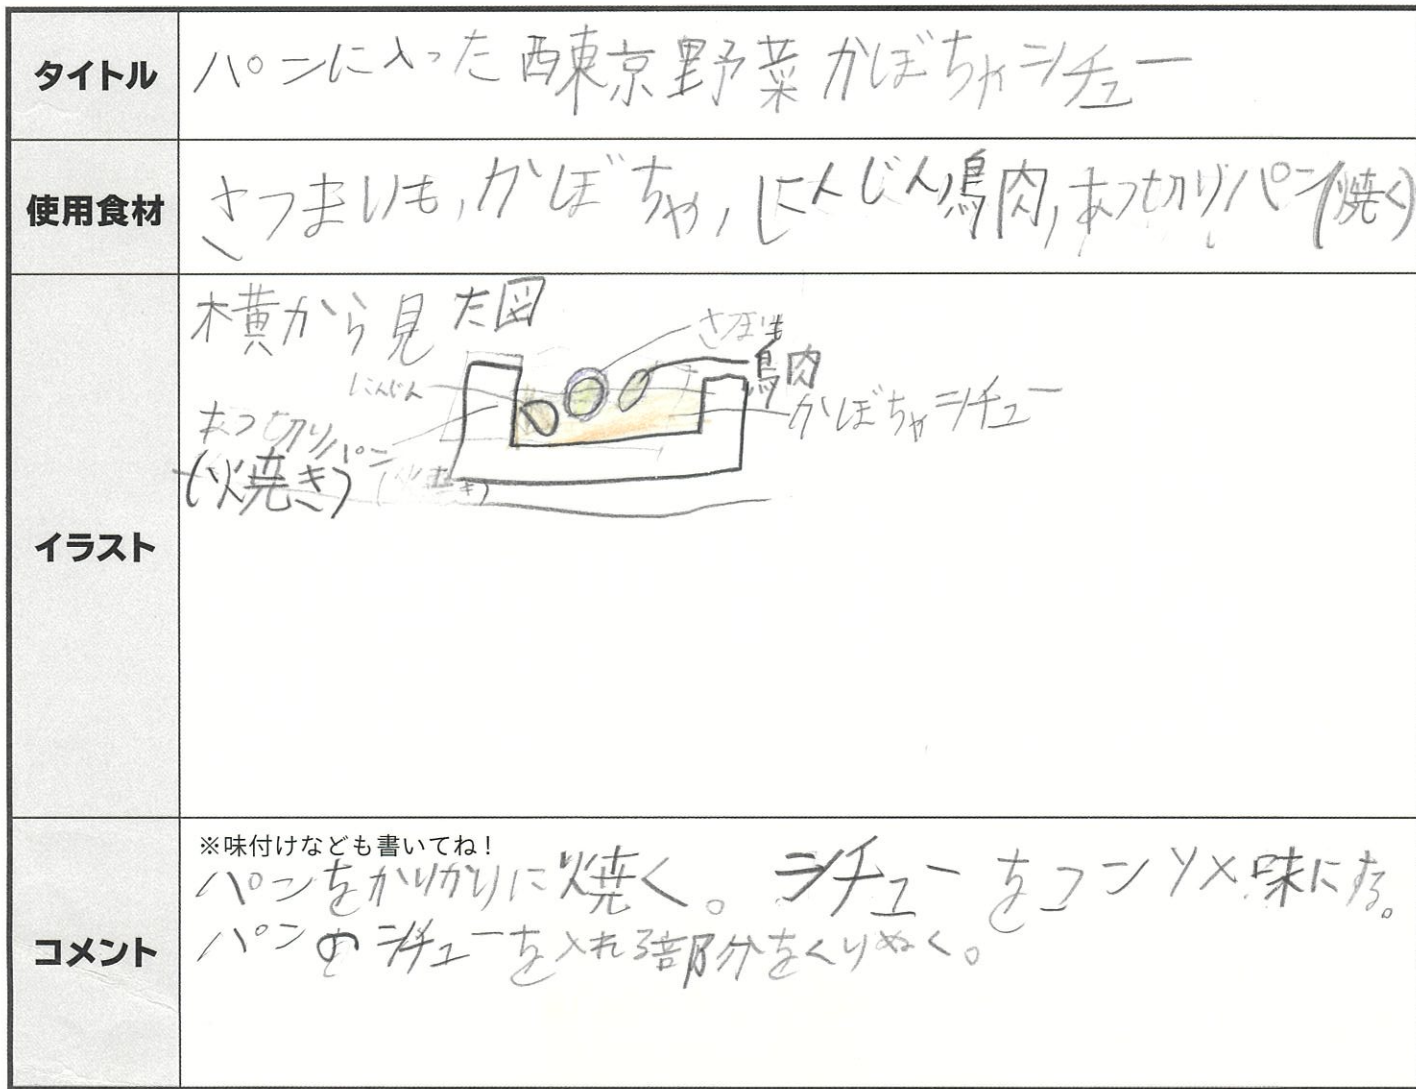 タイトル
パンに入った西東京野菜かぼちゃシチュー
使用食材
さつまいも,かぼちゃ,にんじん,鳥肉,あつ切りパン(焼く)
イラスト
横から見た図
にんじん
鳥肉
かぼちゃシチュー
あつ切りパン
(焼き)
(焼き)
コメント
※味付けなども書いてね!
パンをかりかりに焼く。シチューをコンソメ味にする。
パンのシチューを入れる部分をくりぬく。